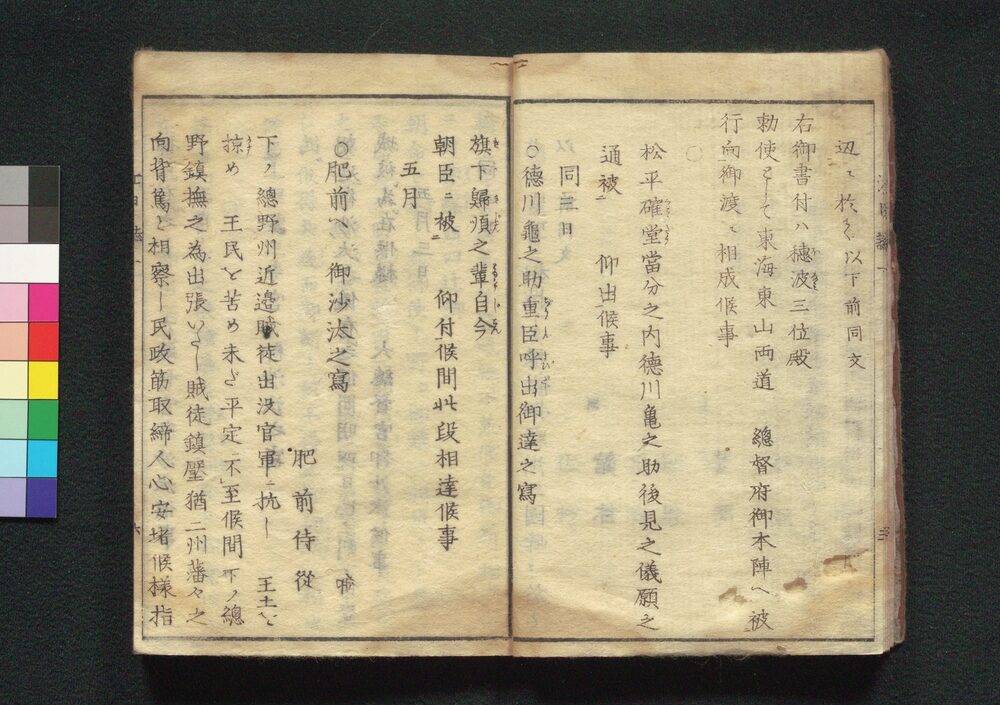 辺ニ於て以下前同文
右御書付ハ穂波三位殿
勅使として東海東山両道　總督府御本陣へ被
行向御渡ニ相成候事
〇
松平確堂當分之内徳川亀之助後見之儀願之
通被　仰出候事
同三日
〇徳川龜之助重臣呼出御達之寫
旗下歸順之輩自今
朝臣ニ被　仰付候間此段相達候事
五月
〇肥前へ御沙汰之寫
肥前侍從
下ノ總野州近邉賊徒出没官軍ニ抗し　王土を
掠め　王民を苦め未だ平定ニ不至候間下ノ總
野鎮撫之為出張いたし賊徒鎮壓猶二州藩々之
向背篤と相察し民政筋取締人心安堵候様指